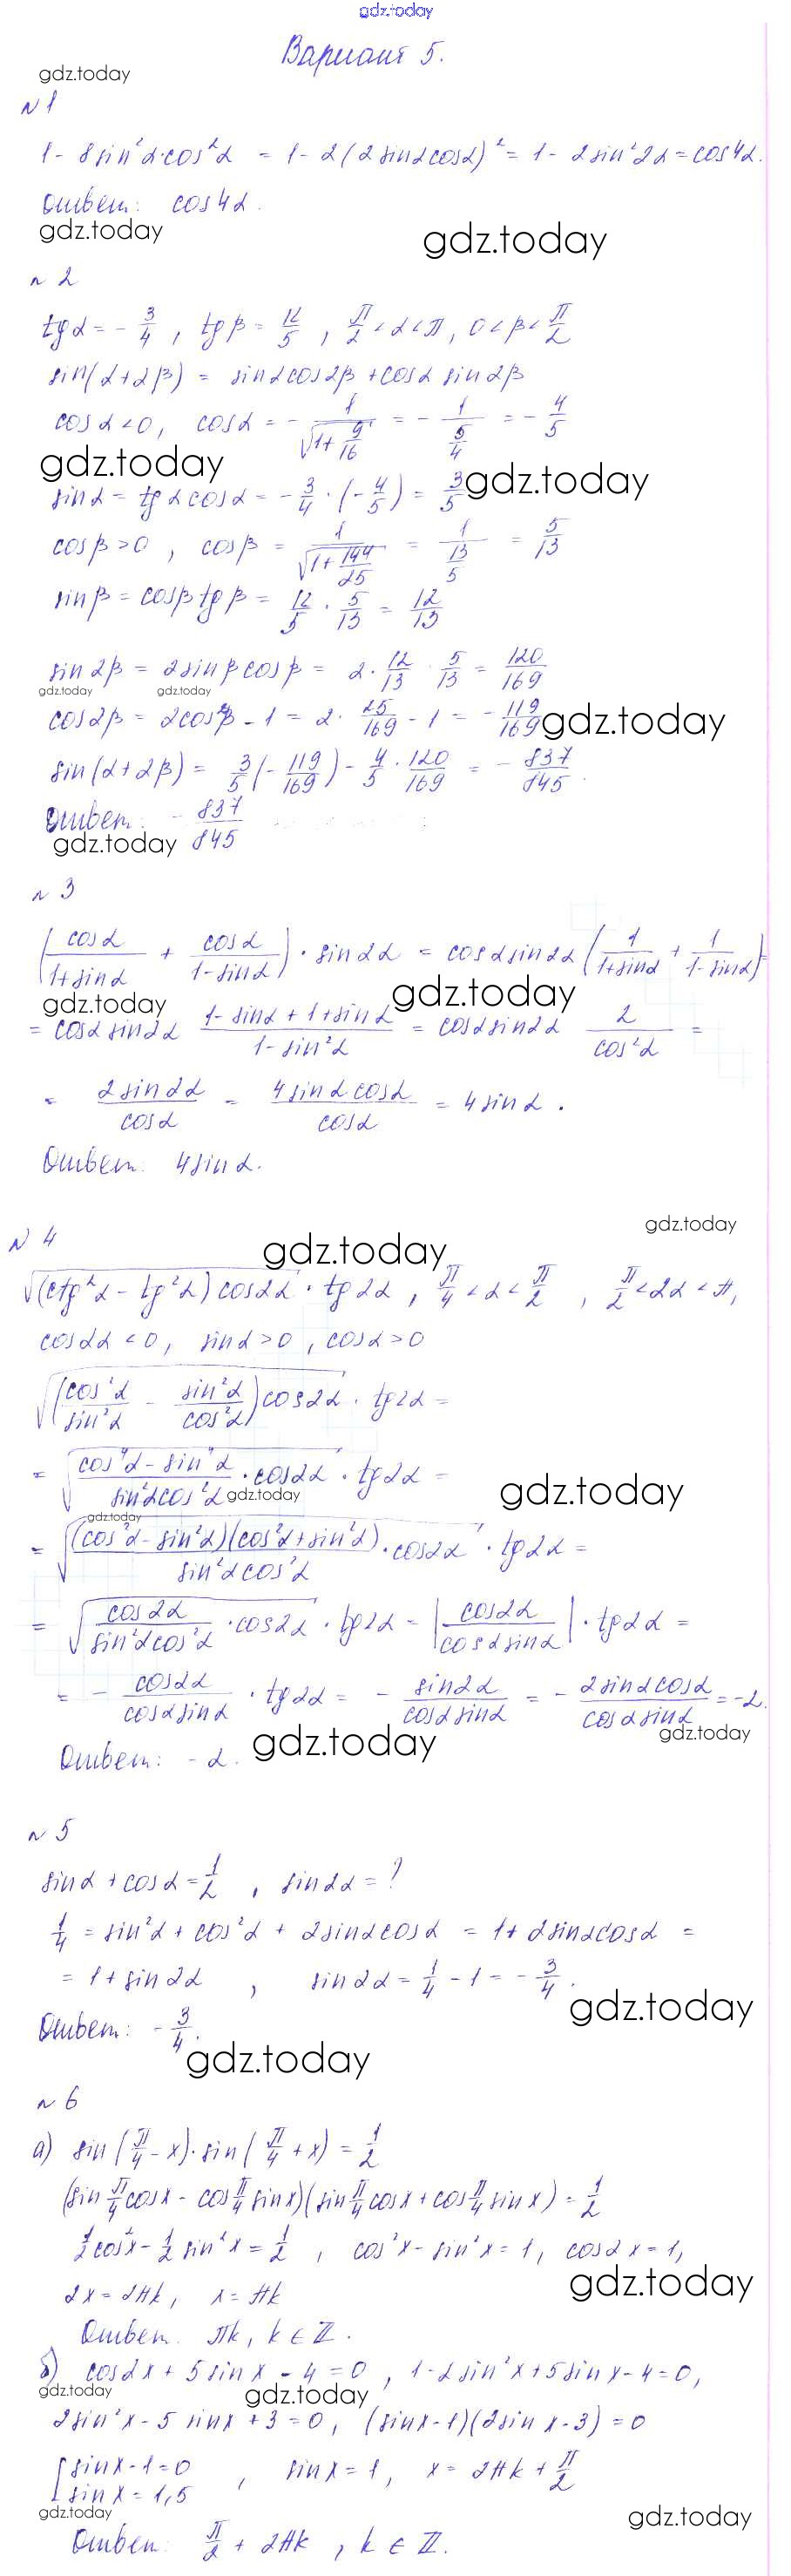 gdz.today
Вариант 5.
gdz.today
№1
1 - 8sin²α·cos²α = 1 - 2(2sinαcosα)² = 1 - 2sin²2α = cos4α.
Ответ: cos4α.
gdz.today gdz.today
№2
tgα = -3/4, tgβ = 12/5, π/2 < α < π, 0 < β < π/2
sin(α+2β) = sinαcos2β + cosα sin2β
cosα < 0, cosα = -1/√(1+9/16) = -1/(5/4) = -4/5
gdz.today gdz.today
sinα = tgαcosα = -3/4·(-4/5) = 3/5
cosβ > 0, cosβ = 1/√(1+144/25) = 1/(13/5) = 5/13
sinβ = cosβtgβ = 12/5·5/13 = 12/13
sin2β = 2sinβcosβ = 2·12/13·5/13 = 120/169
gdz.today gdz.today
cos2β = 2cos²β - 1 = 2·25/169 - 1 = -119/169
gdz.today
sin(α+2β) = 3/5(-119/169) - 4/5·120/169 = -837/845.
Ответ: -837/845
gdz.today
№3
(cosα/(1+sinα) + cosα/(1-sinα))·sin2α = cosαsin2α(1/(1+sinα) + 1/(1-sinα)) =
gdz.today gdz.today
= cosαsin2α (1-sinα+1+sinα)/(1-sin²α) = cosαsin2α 2/cos²α =
= 2sin2α/cosα = 4sinαcosα/cosα = 4sinα.
Ответ: 4sinα.
gdz.today
№4
gdz.today
√((ctg²α - tg²α)cos2α)·tg2α, π/4 < α < π/2, π/2 < 2α < π,
cos2α < 0, sinα > 0, cosα > 0
√((cos²α/sin²α - sin²α/cos²α)cos2α)·tg2α =
= √((cos⁴α - sin⁴α)/(sin²αcos²α)·cos2α)·tg2α =
gdz.today gdz.today
gdz.today
= √((cos²α - sin²α)(cos²α + sin²α)/(sin²αcos²α)·cos2α)·tg2α =
= √(cos2α/(sin²αcos²α)·cos2α)·tg2α = |cos2α/(cosαsinα)|·tg2α =
= -cos2α/(cosαsinα)·tg2α = -sin2α/(cosαsinα) = -2sinαcosα/(cosαsinα) = -2.
gdz.today gdz.today
Ответ: -2.
№5
sinα + cosα = 1/2, sin2α = ?
1/4 = sin²α + cos²α + 2sinαcosα = 1 + 2sinαcosα =
= 1 + sin2α, sin2α = 1/4 - 1 = -3/4.
gdz.today
Ответ: -3/4.
gdz.today
№6
а) sin(π/4 - x)·sin(π/4 + x) = 1/2
(sin π/4 cosx - cos π/4 sinx)(sin π/4 cosx + cos π/4 sinx) = 1/2
1/2cos²x - 1/2sin²x = 1/2, cos²x - sin²x = 1, cos2x = 1,
gdz.today
2x = 2πk, x = πk
Ответ. πk, k ∈ Z.
б) cos2x + 5sinx - 4 = 0, 1 - 2sin²x + 5sinx - 4 = 0,
gdz.today gdz.today
2sin²x - 5sinx + 3 = 0, (sinx - 1)(2sinx - 3) = 0
[sinx - 1 = 0, sinx = 1, x = 2πk + π/2
sinx = 1,5
gdz.today gdz.today
Ответ: π/2 + 2πk, k ∈ Z.